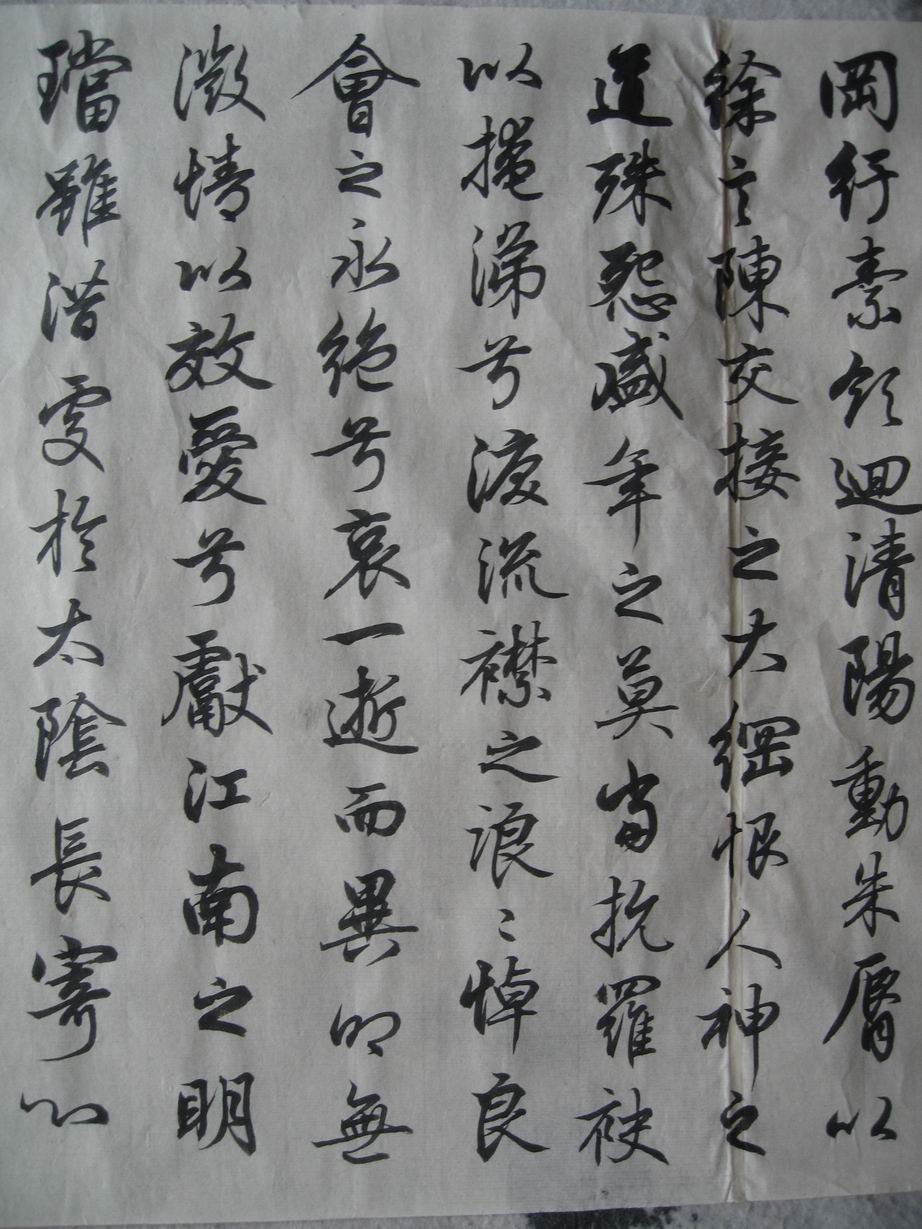 岡紆素領迴清陽動朱脣以
徐言陳交接之大綱恨人神之
道殊怨盛年之莫當抗羅袂
以掩涕兮淚流襟之浪〻悼良
會之永絕兮哀一逝而異鄉無
微情以效愛兮獻江南之明
璫雖潛處於太陰長寄心